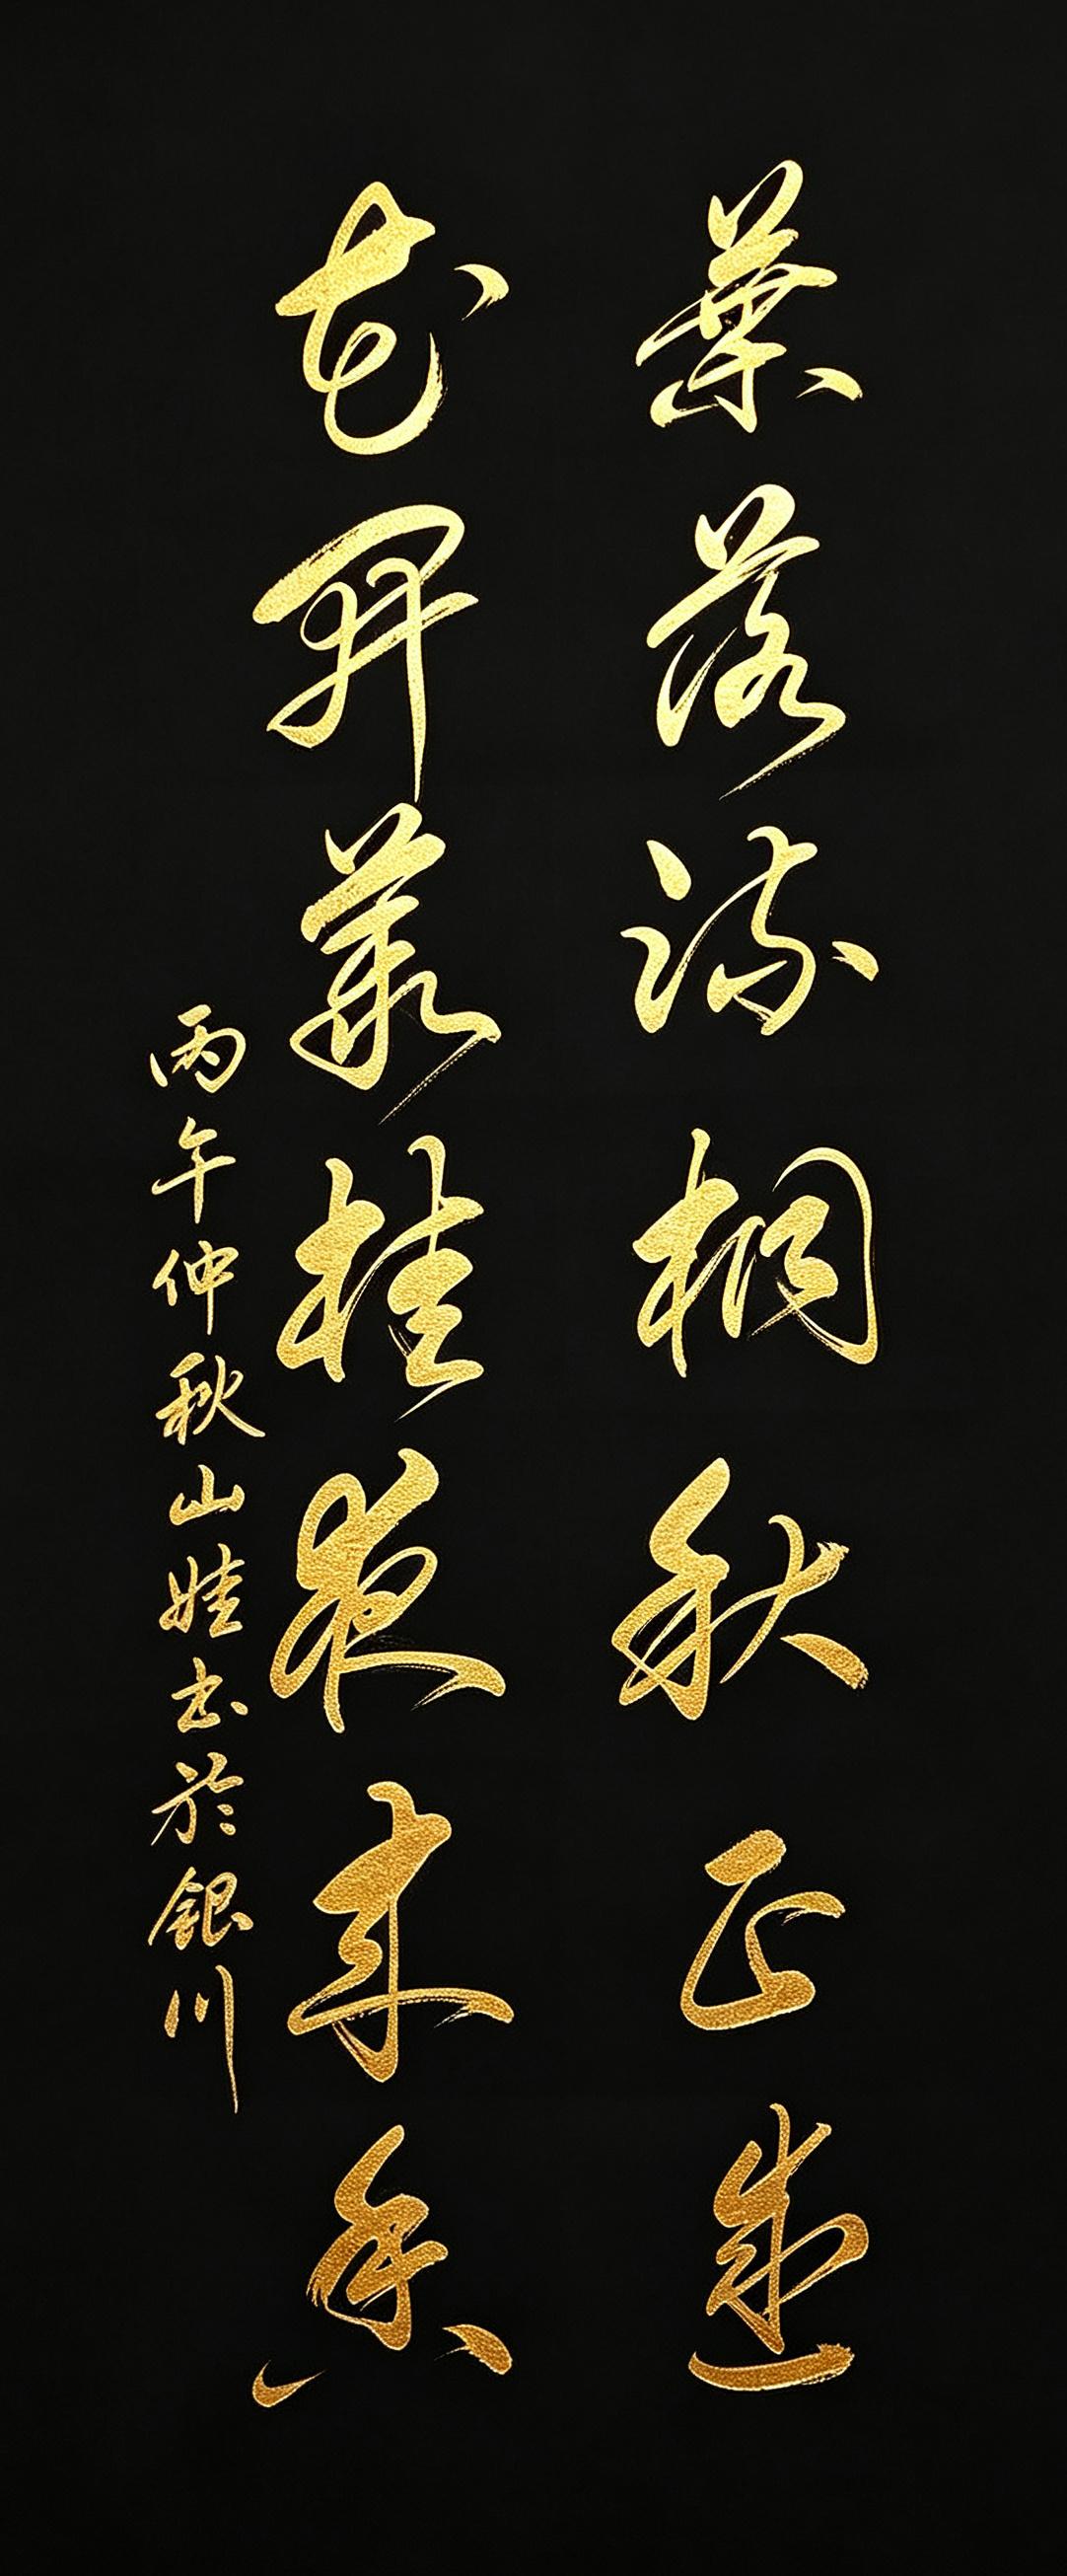 葉落疏桐秋正盛
花開叢桂夜來香
丙午仲秋山娃書於銀川